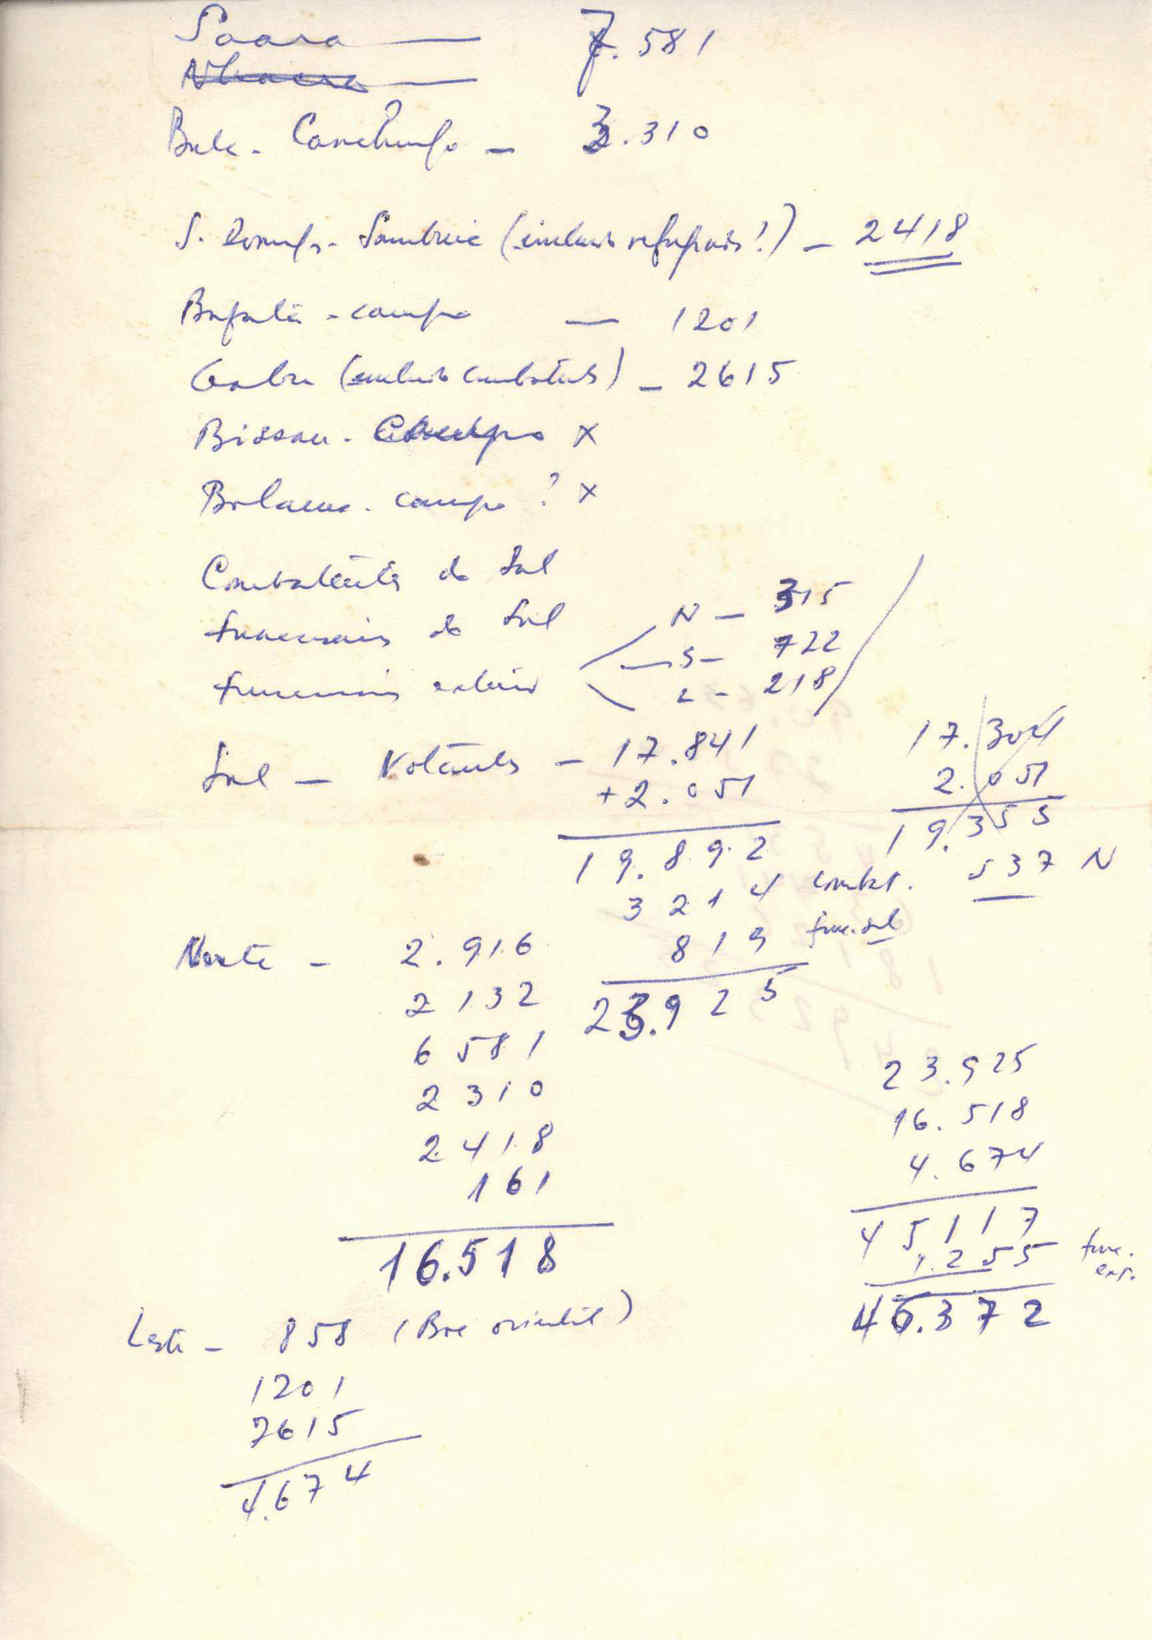 Saara — 7.581
Nhacra —
Bula - Canchungo — 3.310
S. Domgs - Sambuia (inclui refugiais!) — 2418
Bafatá - campo — 1201
Gabu (inclui combatents) — 2615
Bissau - Campo x
Bolama - campo ? x
Combatentes do Sul
funcionais do Sul N — 315
funcionais exterior S — 722
L — 218
Sul — Votantes — 17.841 17.304
+2.051 2.051
19.892 19.355
3214 combat. 537 N
819 func. sul
23.925
Norte — 2.916
2132
6581
2310
2418
161
16.518
23.925
16.518
4.674
45117
1.255 func. ext.
46.372
Leste — 858 (Boe oriental)
1201
2615
4.674